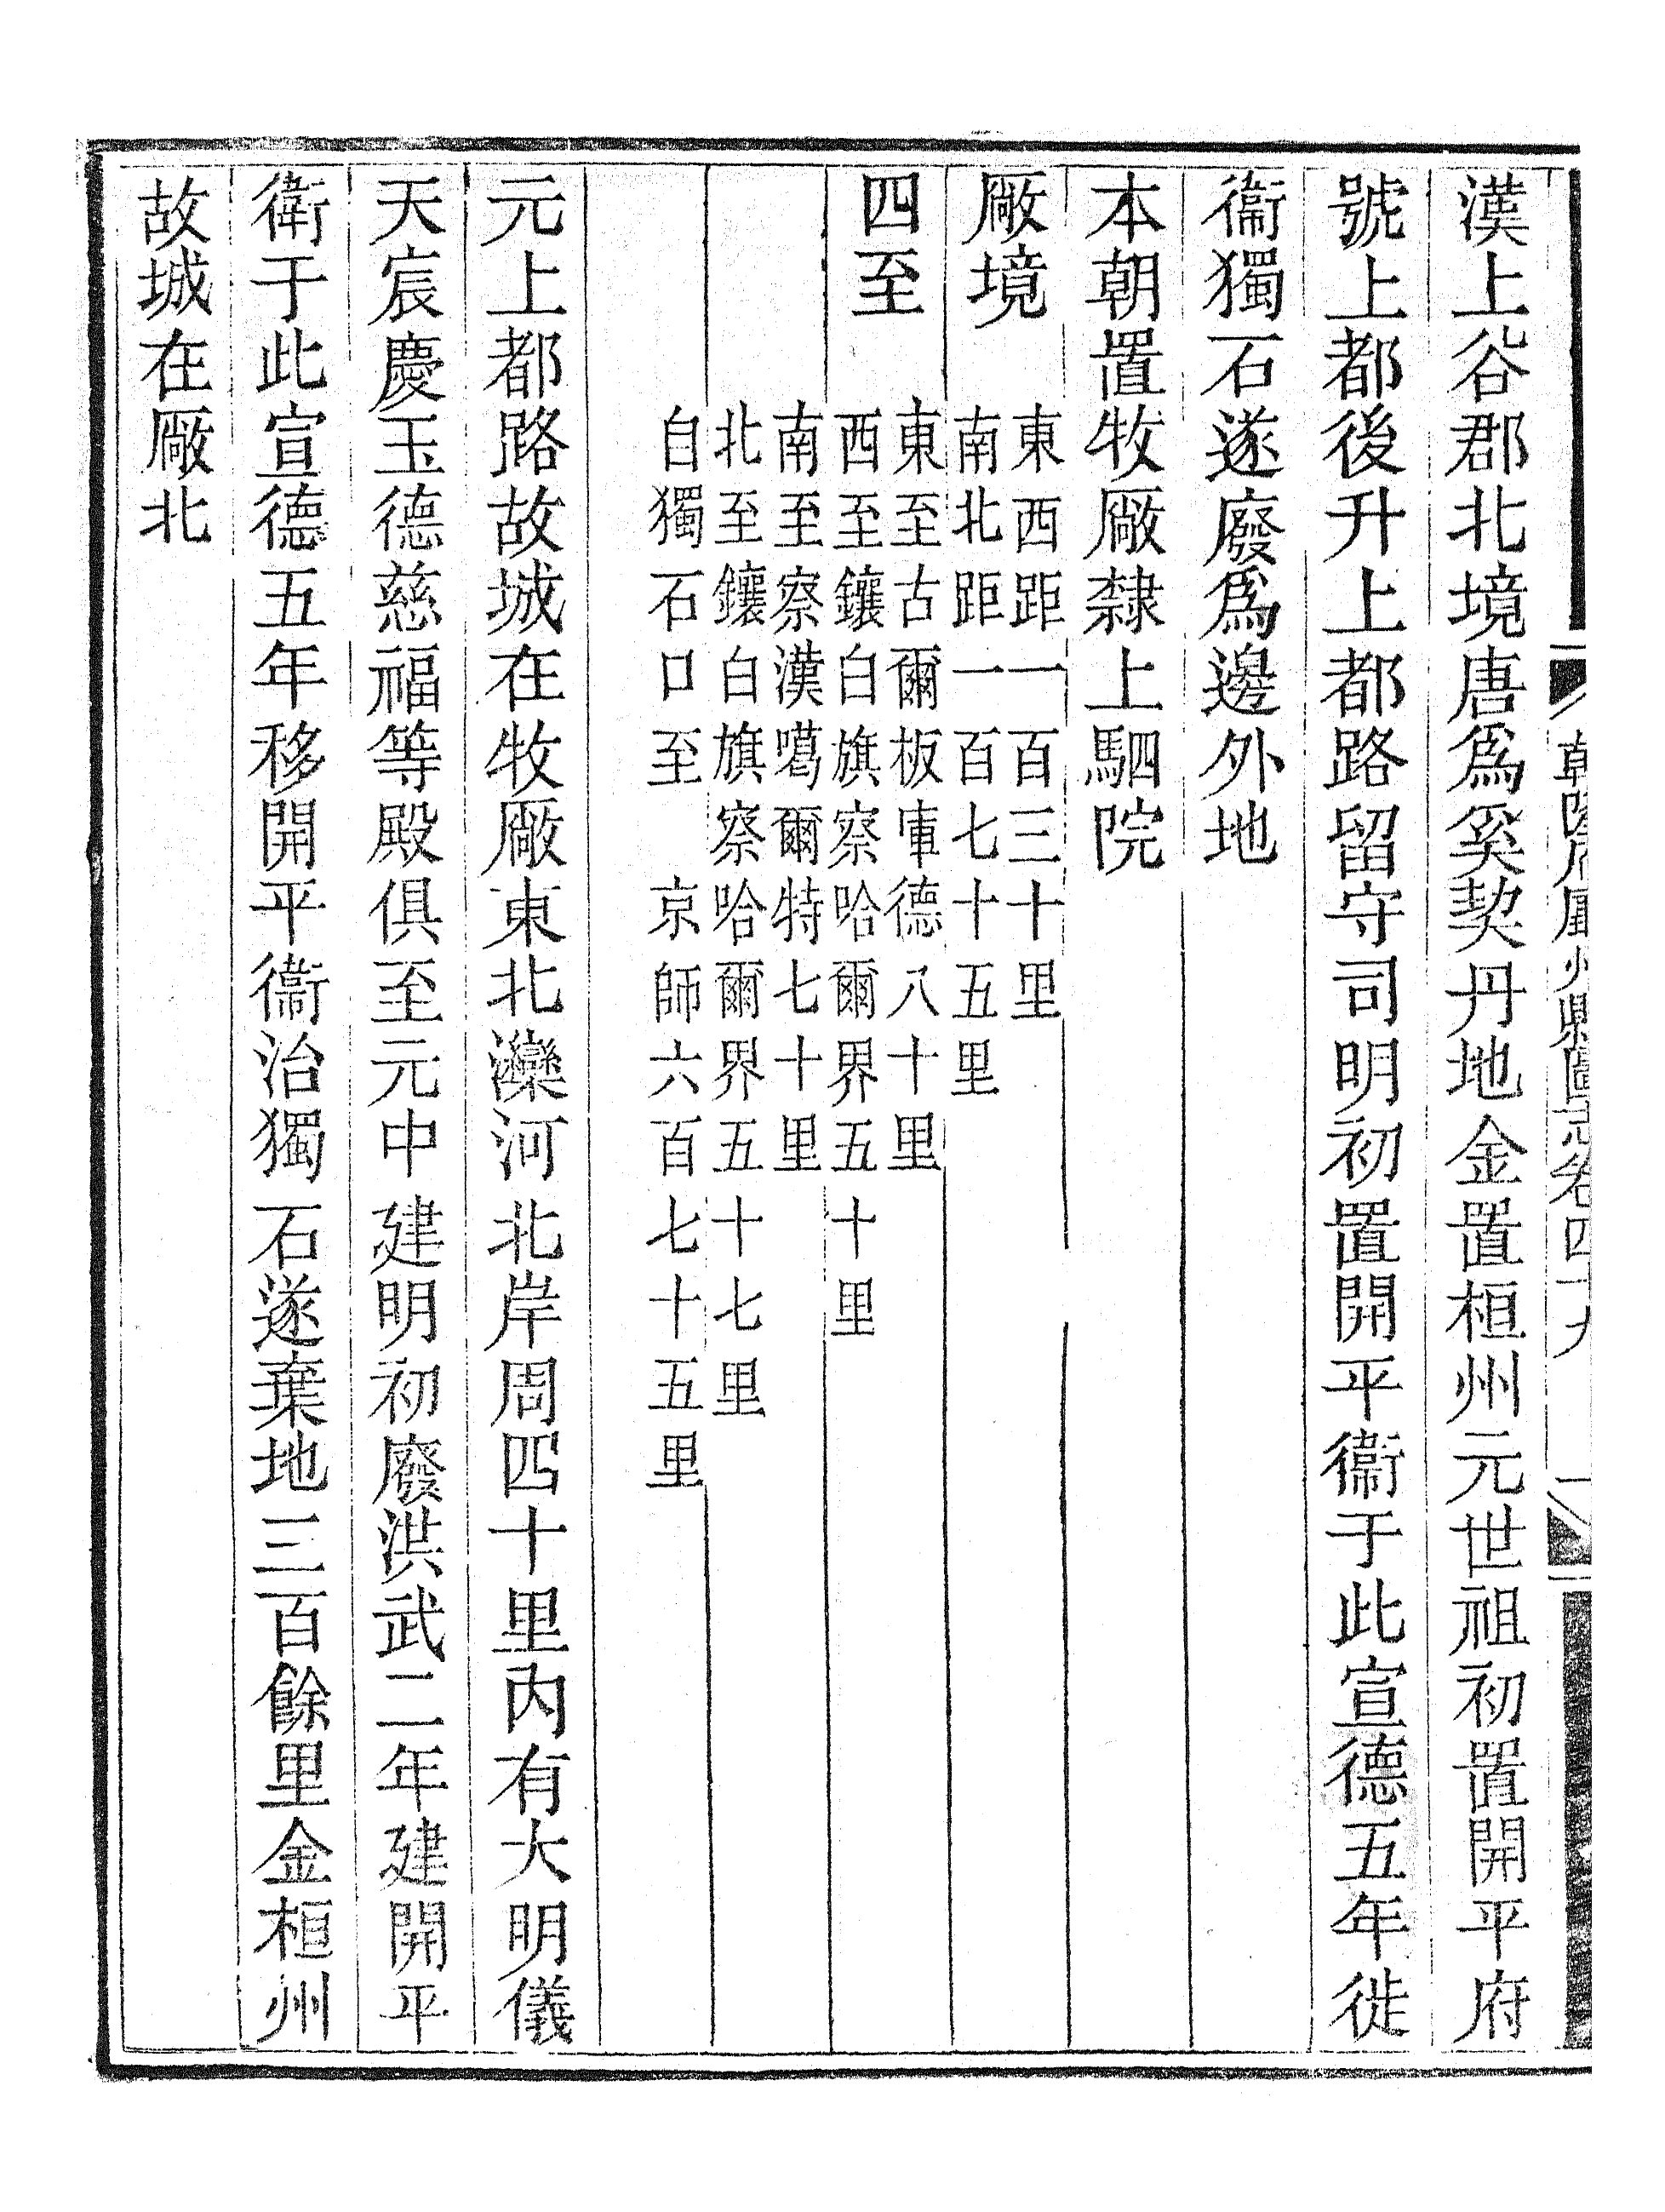 漢上谷郡北境唐爲奚契丹地金置桓州元世祖初置開平府
號上都後升上都路留守司明初置開平衞于此宣德五年徙
衞獨石遂廢爲邊外地
本朝置牧厰隸上駟院
厰境
東西距一百三十里
南北距一百七十五里
四至
東至古爾板庫德八十里
西至鑲白旗察哈爾界五十里
南至察漢噶爾特七十里
北至鑲白旗察哈爾界五十七里
自獨石口至 京師六百七十五里
元上都路故城在牧厰東北灤河北岸周四十里內有大明儀
天宸慶玉德慈福等殿俱至元中建明初廢洪武二年建開平
衛于此宣德五年移開平衞治獨石遂棄地三百餘里金桓州
故城在厰北